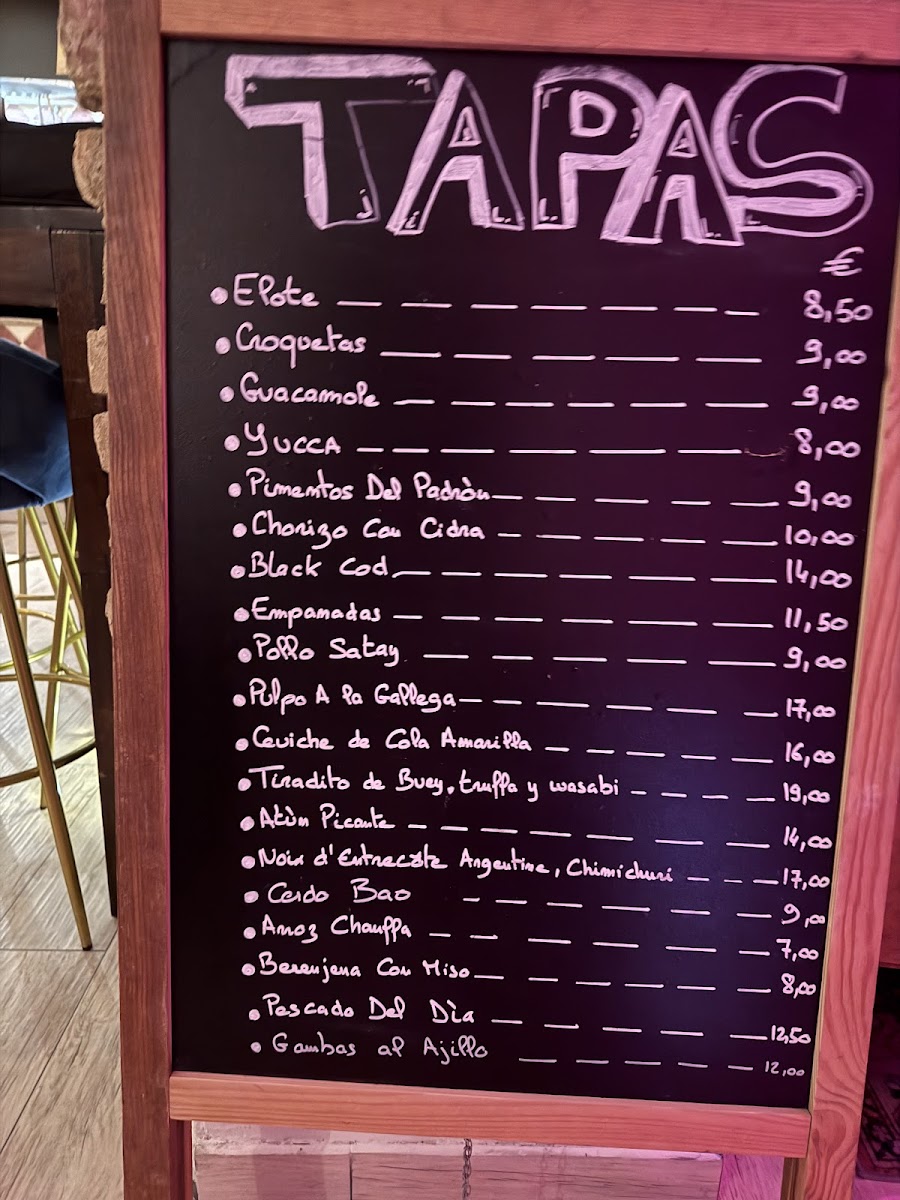 TAPAS
€
• Elote — — — — — — — 8,50
• Croquetas — — — — — 9,00
• Guacamole — — — — — — — 9,00
• Yucca — — — — — — — — 8,00
• Pimentos Del Padròn — — — — — — 9,00
• Chorizo Con Cidra — — — — — — — 10,00
• Black Cod — — — — — — — 14,00
• Empanadas — — — — — — — — 11,50
• Pollo Satay — — — — — — 9,00
• Pulpo A la Gallega — — — — — — — 17,00
• Ceviche de Cola Amarilla — — — — — — 16,00
• Tiradito de Buey, truffa y wasabi — — — — 19,00
• Atùn Picante — — — — — — — — 14,00
• Noix d'Entrecôte Argentine, Chimichuri — — — 17,00
• Cerdo Bao — — — — — — 9,00
• Arroz Chauffa — — — — — — — 7,00
• Berenjena Con Miso — — — — — — 8,00
• Pescado Del Dìa — — — — — 12,50
• Gambas al Ajillo — — — — — — 12,00